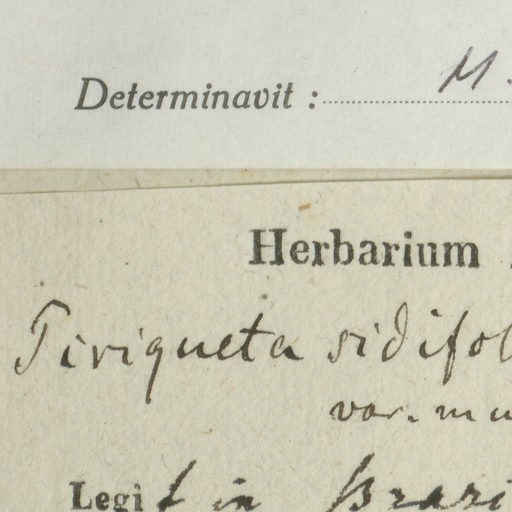 Determinavit : M.
Herbarium
Piriqueta sidifol
var. mu
Legit in Brasi